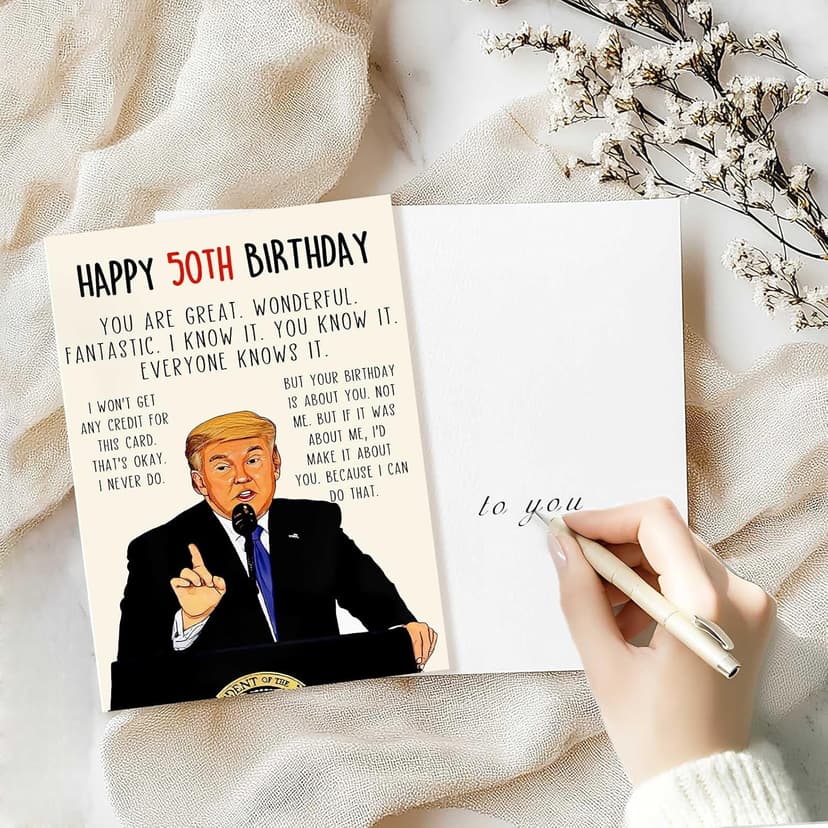 HAPPY 50TH BIRTHDAY
YOU ARE GREAT. WONDERFUL.
FANTASTIC. I KNOW IT. YOU KNOW IT.
EVERYONE KNOWS IT.
I WON'T GET
ANY CREDIT FOR
THIS CARD.
THAT'S OKAY.
I NEVER DO.
BUT YOUR BIRTHDAY
IS ABOUT YOU. NOT
ME. BUT IF IT WAS
ABOUT ME, I'D
MAKE IT ABOUT
YOU. BECAUSE I CAN
DO THAT.
DENT OF THE
to you